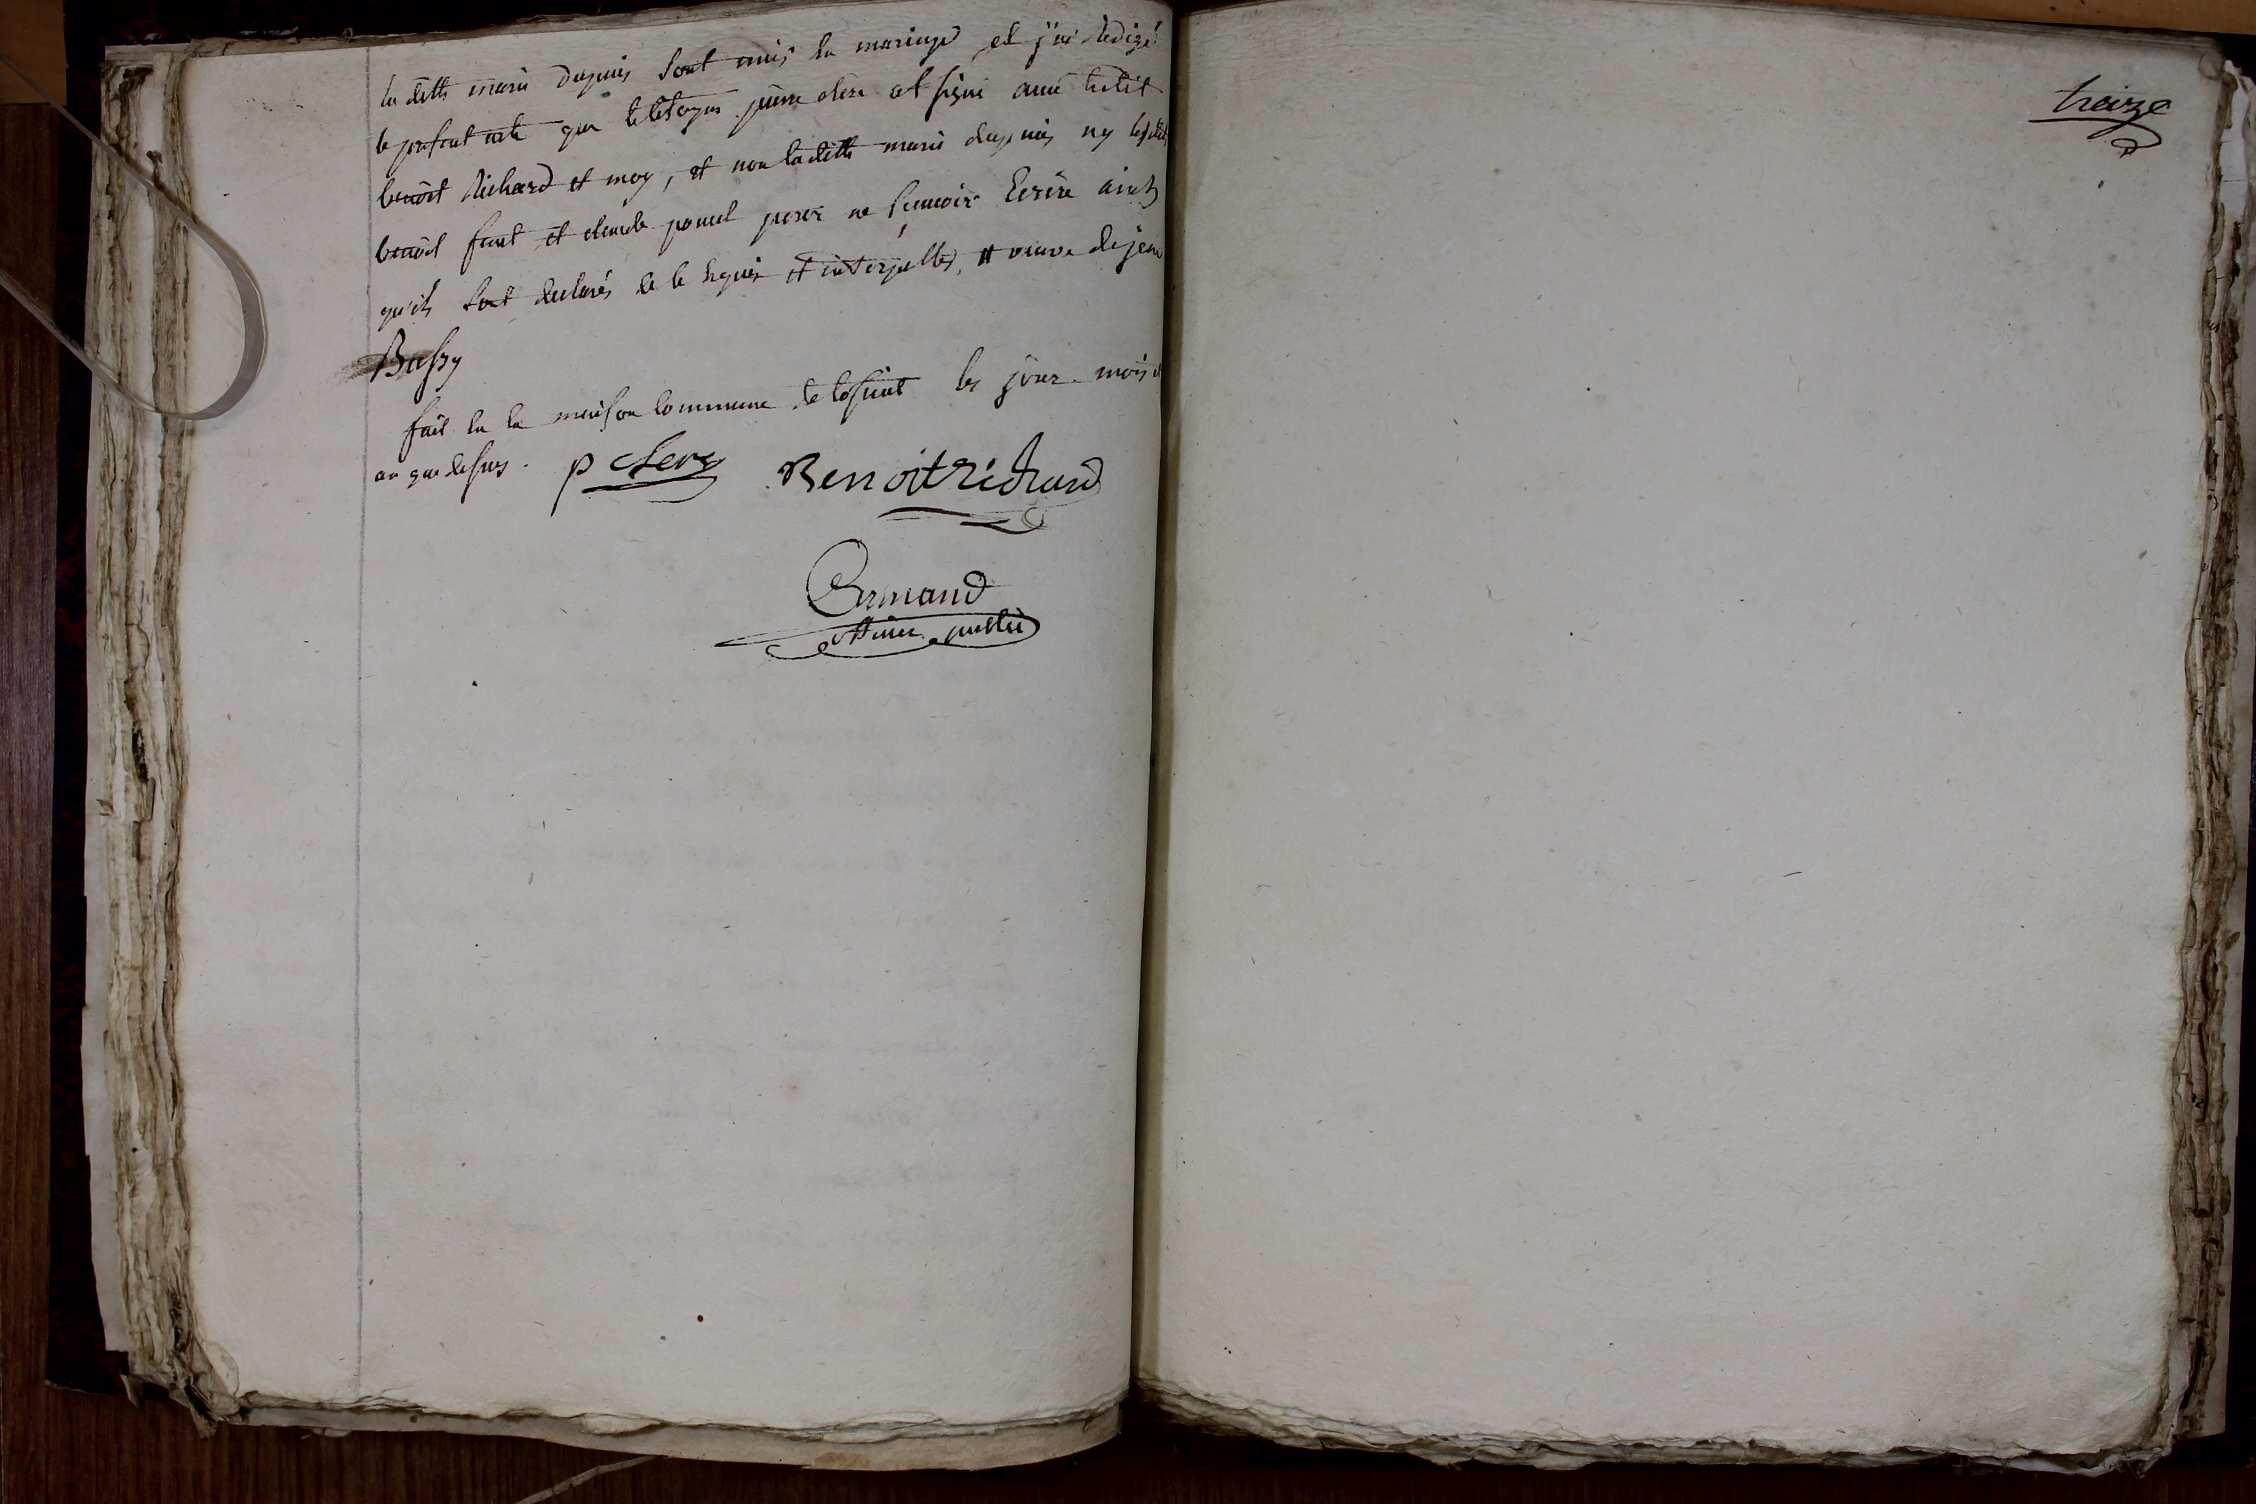 la ditte marie dupuis sont unis en mariage et j'ai rédigé
le present acte que le citoyen pierre clerc at signé avec ledit
benoit Richard et moy, et non laditte marie dupuis ny lesdits
benoit faut et claude poncel pour ne sçavoir Ecrire ainsy
qu'ils sont declarés de ce requis et interpellés, # veuve de jean
Bussy
fait en la maison commune de les jour mois et
an que dessus. p clerc Benoit Richard
Armand
officier public
treize